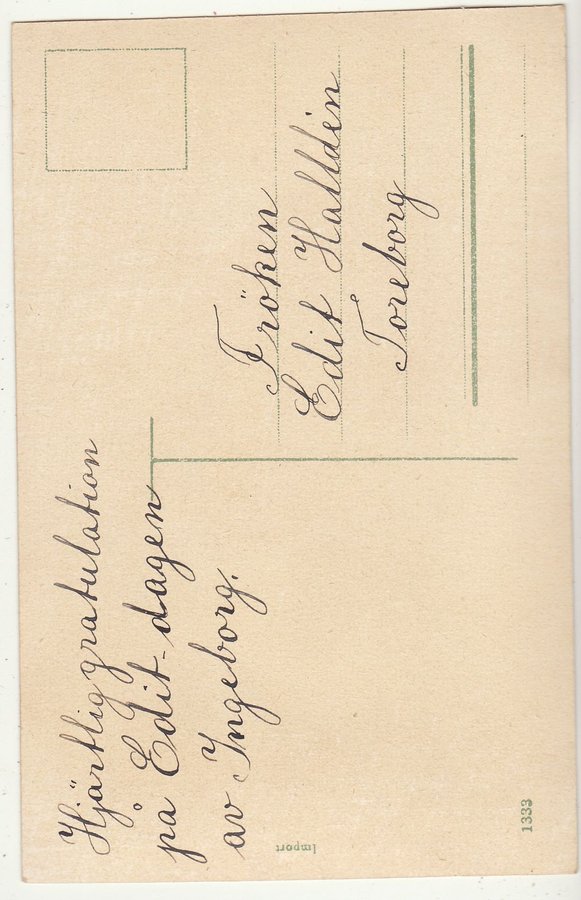 Hjärtlig gratulation
på Edit-dagen
av Ingeborg.
Fröken
Edit Halldin
Toreborg
Import
1333